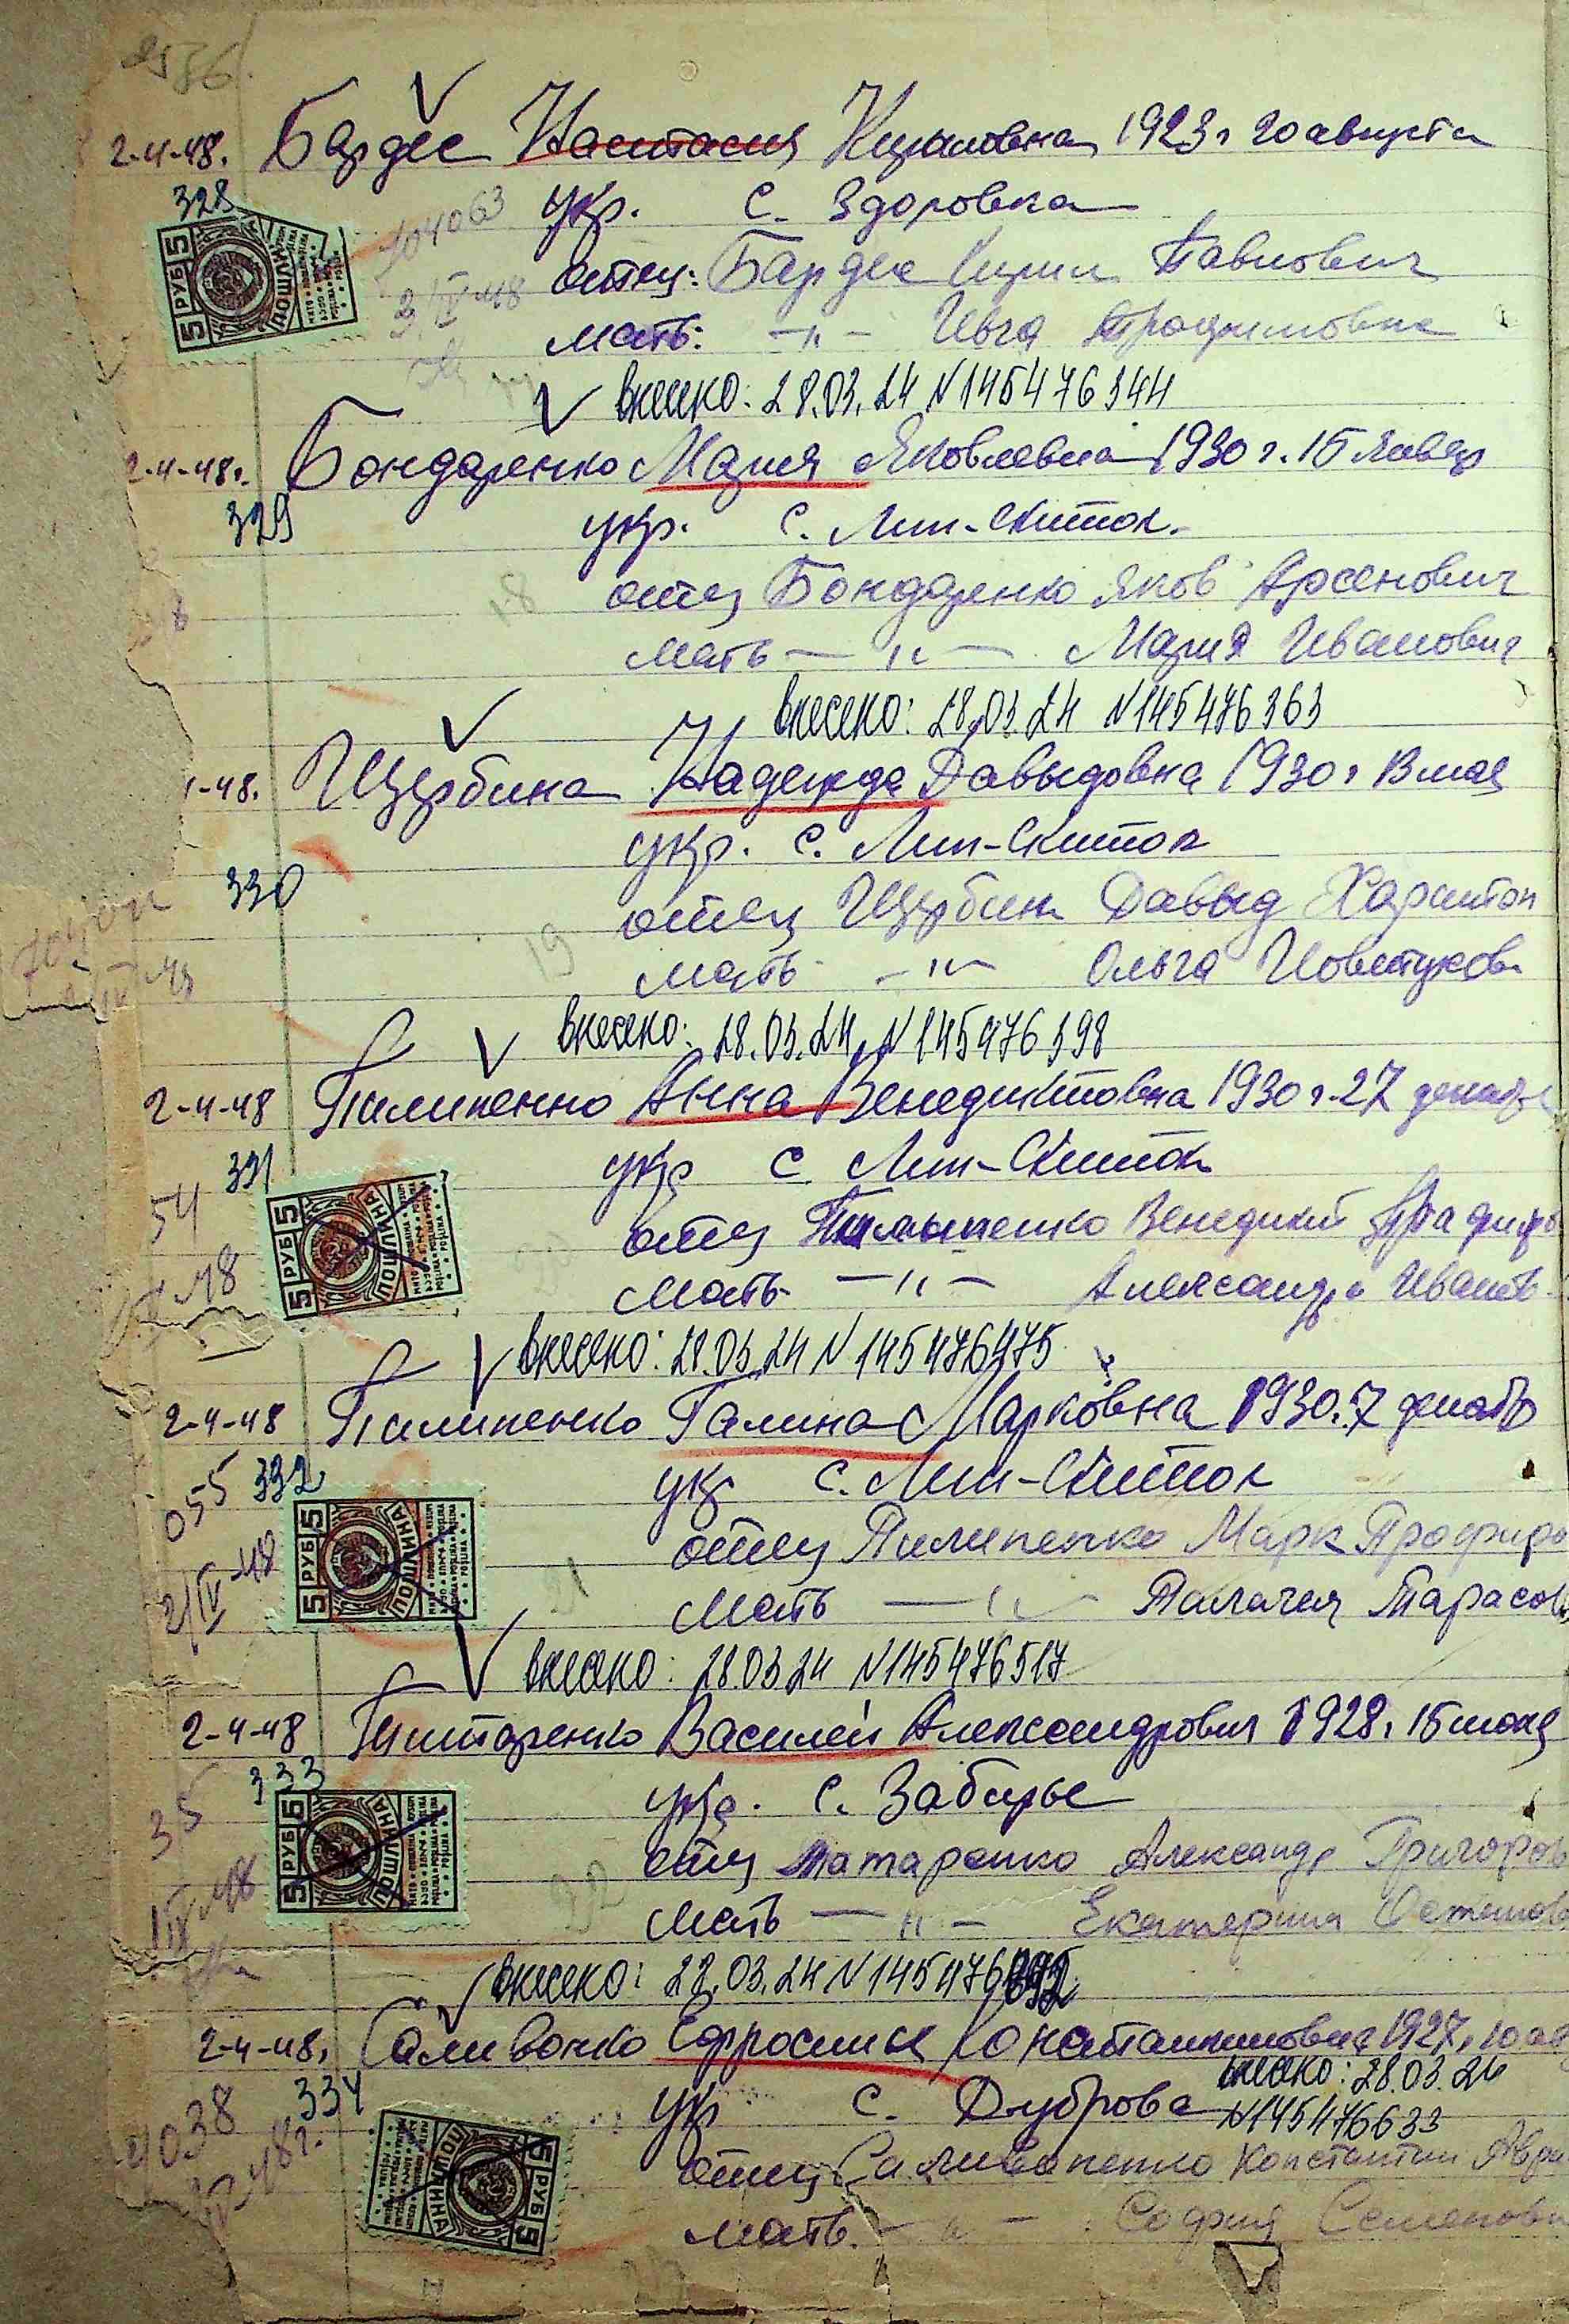 2-4-48. Бардес Настасия Кириловна 1923 г 20 августа
328
укр. с. Здоровка
104063
отец: Бардес Кирил Павлович
3/IV 48
мать: -"- Ивга Трофимовна
внесено: 28.03.24 N145476344
2-4-48г. Бондаренко Мария Яковлевна 1930 г. 15 январ
329
укр. с. Лип-Скиток.
18
отец Бондаренко Яков Арсенович
мать - " - Мария Ивановна
внесено: 28.03.24 N145476363
-48. Щербина Надежда Давыдовна 1930 г 13 мая
укр. с. Лип-Скиток
330
отец Щербина Давыд Харитон
19
мать -"- Ольга
внесено: 28.03.24 N145476398
2-4-48 Пилипенко Анна Венедиктовна 1930 г. 27 декабр
331
укр с Лип-Скиток
54
5 РУБ 5
ПОШЛИНА
отец Пилипенко Венедикт
48
мать -"- Александра Иванов
внесено: 28.03.24 N145476475
2-4-48 Пилипенко Галина Марковна 1930. 7 декабр
055 332
укр с. Лип-Скиток
5 РУБ 5
ПОШЛИНА
отец Пилипенко Марк
2/IV-48
21
мать - " - Палагея Тарасов
внесено: 28.03.24 N145476517
2-4-48 Титаренко Василий Александрович 1928 г 15
333
укр. с. Забирье
35
5 РУБ 5
ПОШЛИНА
отец Татаренко Александр Григоров
IV 48
22
мать - " - Екатерина
внесено: 28.03.24 N145476
2-4-48. Саливонко Ефросиния Константиновна 1927 г 10 ав
внесено: 28.03.24
334
укр с. Дуброва N145476633
4038
48г.
5 РУБ 5
ПОШЛИНА
отец Константин
мать. - " - София Семеновн